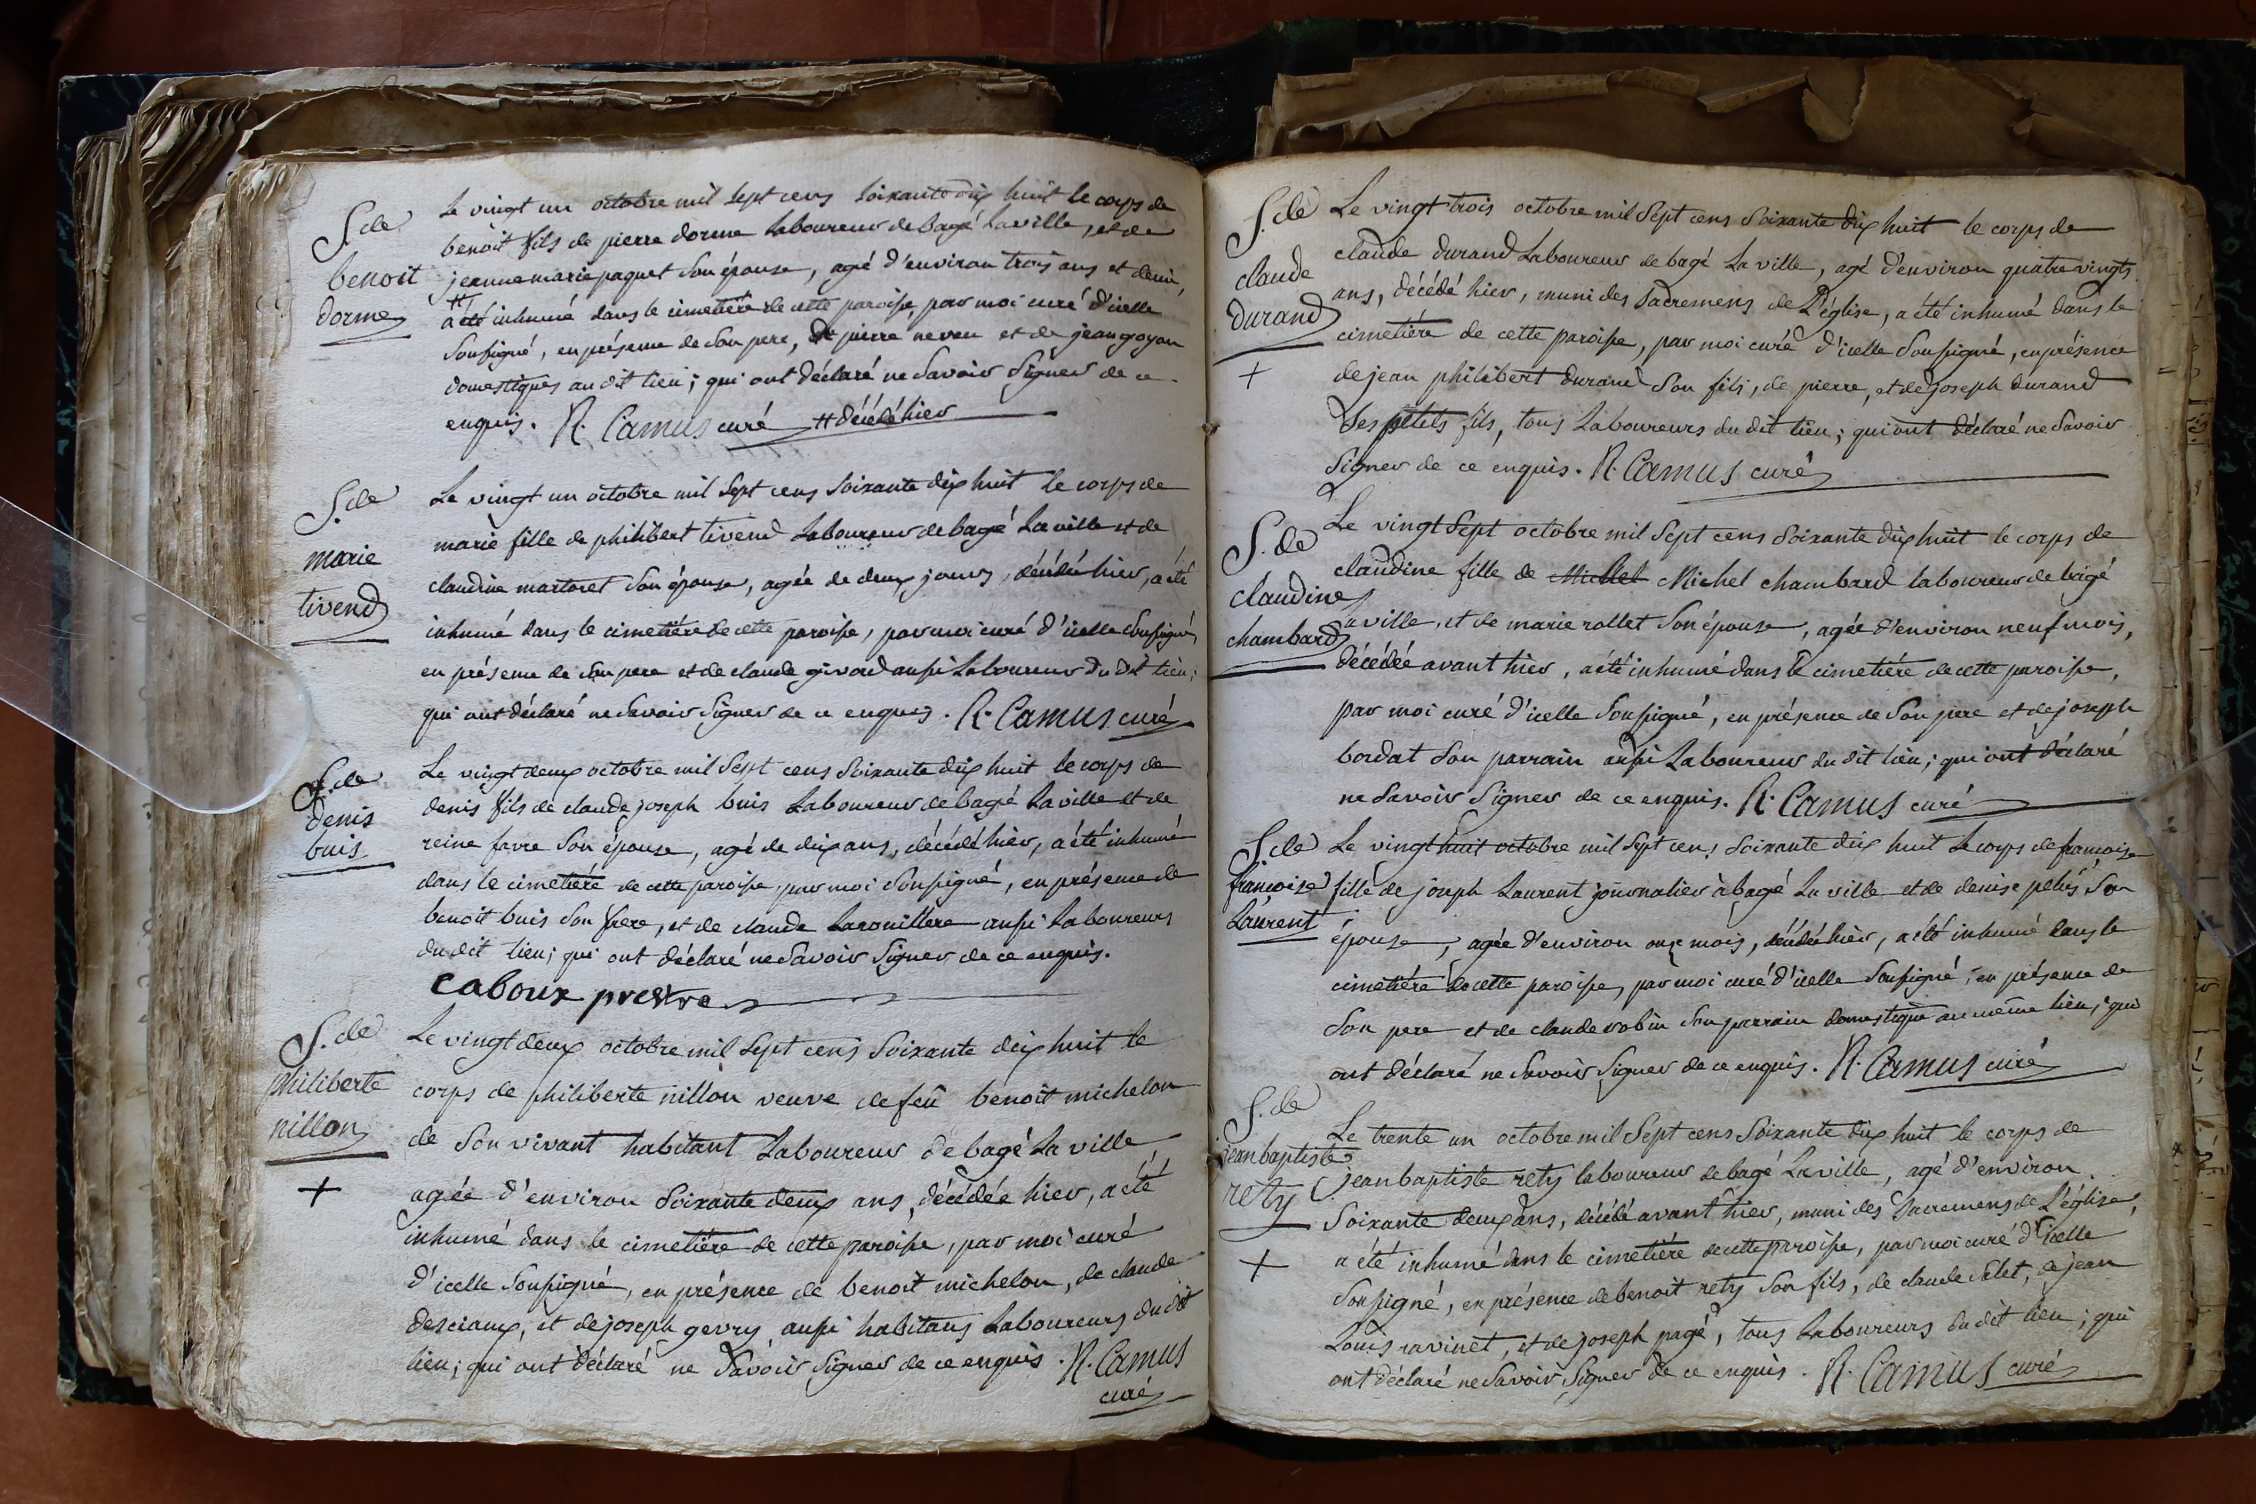 S. de
benoit
dorme
Le vingt un octobre mil sept cens soixante dix huit le corps de
benoit fils de pierre dorme laboureur de bagé la ville, et de
jeanne marie paquet son épouse, agé d'environ trois ans et demi,
# a été inhumé dans le cimetiére de cette paroisse, par moi curé d'icelle
soussigné, en présence de son pere, de pierre neveu et de jean goyon
domestiques au dit lieu; qui ont déclaré ne savoir signer de ce
enquis. R. Camus curé # décédé hier
S. de
marie
tivend
Le vingt un octobre mil sept cens soixante dix huit le corps de
marie fille de philibert tivend laboureur de bagé la ville et de
claudine martoret son épouse, agée de deux jours, décédée hier, a été
inhumé dans le cimetiére de cette paroisse, par moi curé d'icelle soussigné,
en présence de son pere et de claude givord aussi laboureur du dit lieu;
qui ont déclaré ne savoir signer de ce enquis. R. Camus curé
S. de
denis
buis
Le vingt deux octobre mil sept cens soixante dix huit le corps de
denis fils de claude joseph buis laboureur de bagé la ville et de
reine favre son épouse, agé de dix ans, décédé hier, a été inhumé
dans le cimetiére de cette paroisse, par moi soussigné, en présence de
benoit buis son frere, et de claude laronillere aussi laboureurs
du dit lieu; qui ont déclaré ne savoir signer de ce enquis.
caboux prestre
S. de
philiberte
nillon
+
Le vingt deux octobre mil sept cens soixante dix huit le
corps de philiberte nillon veuve de feû benoit michelon
de son vivant habitant laboureur de bagé la ville
agée d'environ soixante deux ans, décédée hier, a été
inhumé dans le cimetiére de cette paroisse, par moi curé
d'icelle soussigné, en présence de benoit michelon, de claude
desciaux, et de joseph gevry aussi habitans laboureurs du dit
lieu; qui ont déclaré ne savoir signer de ce enquis. R. Camus
curé
S. de
claude
durand
+
Le vingt trois octobre mil sept cens soixante dix huit le corps de
claude durand laboureur de bagé la ville, agé d'environ quatre vingts
ans, décédé hier, muni des sacremens de l'église, a été inhumé dans le
cimetiére de cette paroisse, par moi curé d'icelle soussigné, en présence
de jean philibert durand son fils, de pierre, et de joseph durand
ses petits fils, tous laboureurs du dit lieu; qui ont déclaré ne savoir
signer de ce enquis. R. Camus curé
S. de
claudine
chambard
Le vingt sept octobre mil sept cens soixante dix huit le corps de
claudine fille de Michel chambard laboureur de bagé
la ville, et de marie rollet son épouse, agée d'environ neuf mois,
décédée avant hier, a été inhumé dans le cimetiére de cette paroisse,
par moi curé d'icelle soussigné, en présence de son pere et de joseph
bordat son parrain aussi laboureur du dit lieu; qui ont déclaré
ne savoir signer de ce enquis. R. Camus curé
S. de
francoise
Laurent
Le vingt huit octobre mil sept cens soixante dix huit le corps de francoise
fille de joseph Laurent journalier à bagé la ville et de denise pelus son
épouse, agée d'environ onze mois, décédée hier, a été inhumé dans le
cimetiére de cette paroisse, par moi curé d'icelle soussigné, en présence de
son pere et de claude robin son parrain domestique au même lieu; qui
ont déclaré ne savoir signer de ce enquis. R. Camus curé
S. de
jean baptiste
rety
+
Le trente un octobre mil sept cens soixante dix huit le corps de
jean baptiste rety laboureur de bagé la ville, agé d'environ
soixante deux ans, décédé avant hier, muni des sacremens de l'église,
a été inhumé dans le cimetiére de cette paroisse, par moi curé d'icelle
soussigné, en présence de benoit rety son fils, de claude salet, de jean
Louis ravinet, et de joseph pagé, tous laboureurs du dit lieu; qui
ont déclaré ne savoir signer de ce enquis. R. Camus curé